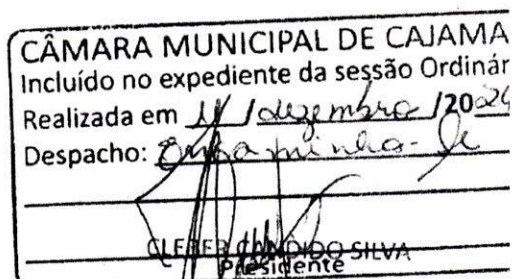 CÂMARA MUNICIPAL DE CAJAMA
Incluído no expediente da sessão Ordinár
Realizada em 11 / dezembro /2024
Despacho: Encaminha-se
CLEBER CANDIDO SILVA
Presidente